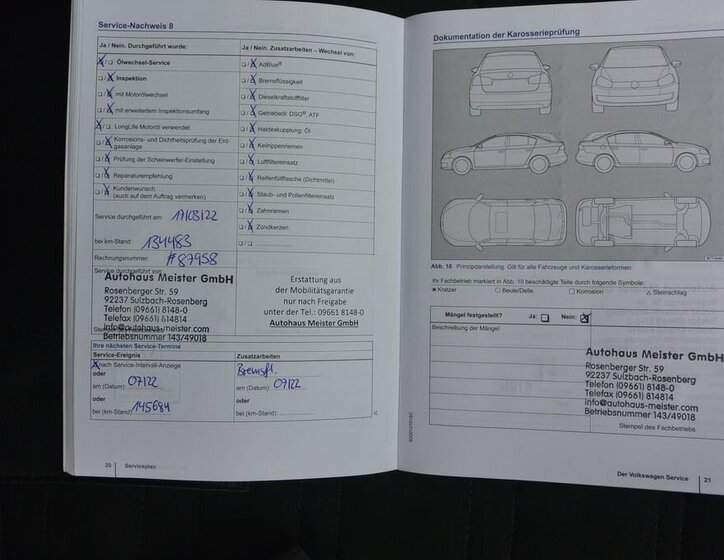 Service-Nachweis 8
Ja / Nein. Durchgeführt wurde:
Ölwechsel-Service
Inspektion
mit Motorölwechsel
mit erweitertem Inspektionsumfang
LongLife Motoröl verwendet
Korrosions- und Dichtheitsprüfung der Erdgasanlage
Prüfung der Scheinwerfer-Einstellung
Reparaturempfehlung
Kundenwunsch
(auch auf dem Auftrag vermerken)
Service durchgeführt am: 17/03/22
bei km-Stand: 134483
Rechnungsnummer: #87958
Service durchgeführt von
Autohaus Meister GmbH
Rosenberger Str. 59
92237 Sulzbach-Rosenberg
Telefon (09661) 8148-0
Telefax (09661) 814814
info@autohaus-meister.com
Betriebsnummer 143/49018
Ja / Nein. Zusatzarbeiten – Wechsel von:
AdBlue®
Bremsflüssigkeit
Dieselkraftstofffilter
Getriebeöl: DSG®, ATF
Haldexkupplung: Öl
Keilrippenriemen
Luftfiltereinsatz
Reifenfüllflasche (Dichtmittel)
Staub- und Pollenfiltereinsatz
Zahnriemen
Zündkerzen
Erstattung aus
der Mobilitätsgarantie
nur nach Freigabe
unter der Tel.: 09661 8148-0
Autohaus Meister GmbH
Ihre nächsten Service-Termine
Service-Ereignis
nach Service-Intervall-Anzeige
oder
am (Datum): 07/22
oder
bei (km-Stand): 145684
Zusatzarbeiten
Bremsfl.
am (Datum): 07/22
oder
bei (km-Stand):
20 Serviceplan
Dokumentation der Karosserieprüfung
Abb. 10 Prinzipdarstellung. Gilt für alle Fahrzeuge und Karosserieformen.
Ihr Fachbetrieb markiert in Abb. 10 beschädigte Teile durch folgende Symbole:
× Kratzer ○ Beule/Delle □ Korrosion △ Steinschlag
Mängel festgestellt? Ja: Nein:
Beschreibung der Mängel:
Autohaus Meister GmbH
Rosenberger Str. 59
92237 Sulzbach-Rosenberg
Telefon (09661) 8148-0
Telefax (09661) 814814
info@autohaus-meister.com
Betriebsnummer 143/49018
Stempel des Fachbetriebs
Der Volkswagen Service 21